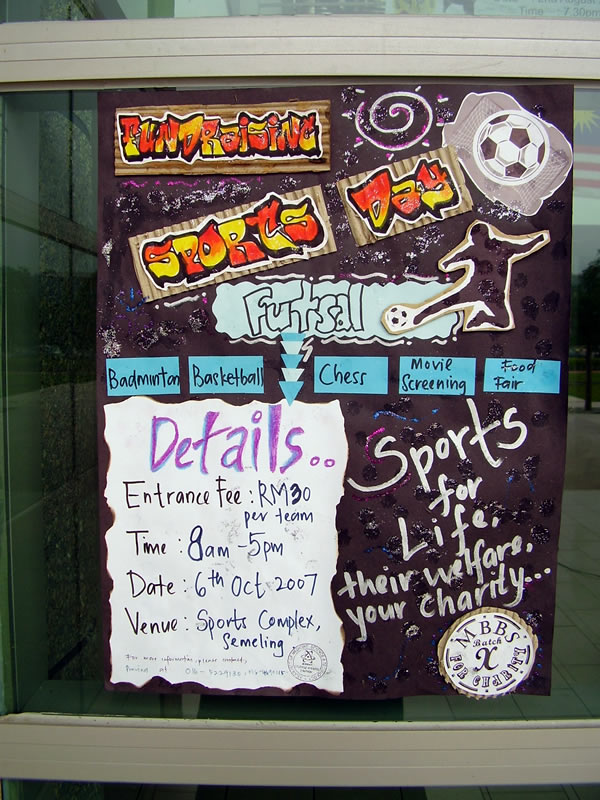 Time :7.30pm
FUNDRaising
SPORTS Day
Futsal
Badminton Basketball Chess Movie Screening Food Fair
Details..
Entrance Fee : RM30
per team
Time : 8am -5pm
Date : 6th Oct 2007
Venue : Sports Complex,
Semeling
For more information please contact:
Sports
for
Life,
their welfare,
your charity...
MBBS
Batch
X
FOR CHARITY